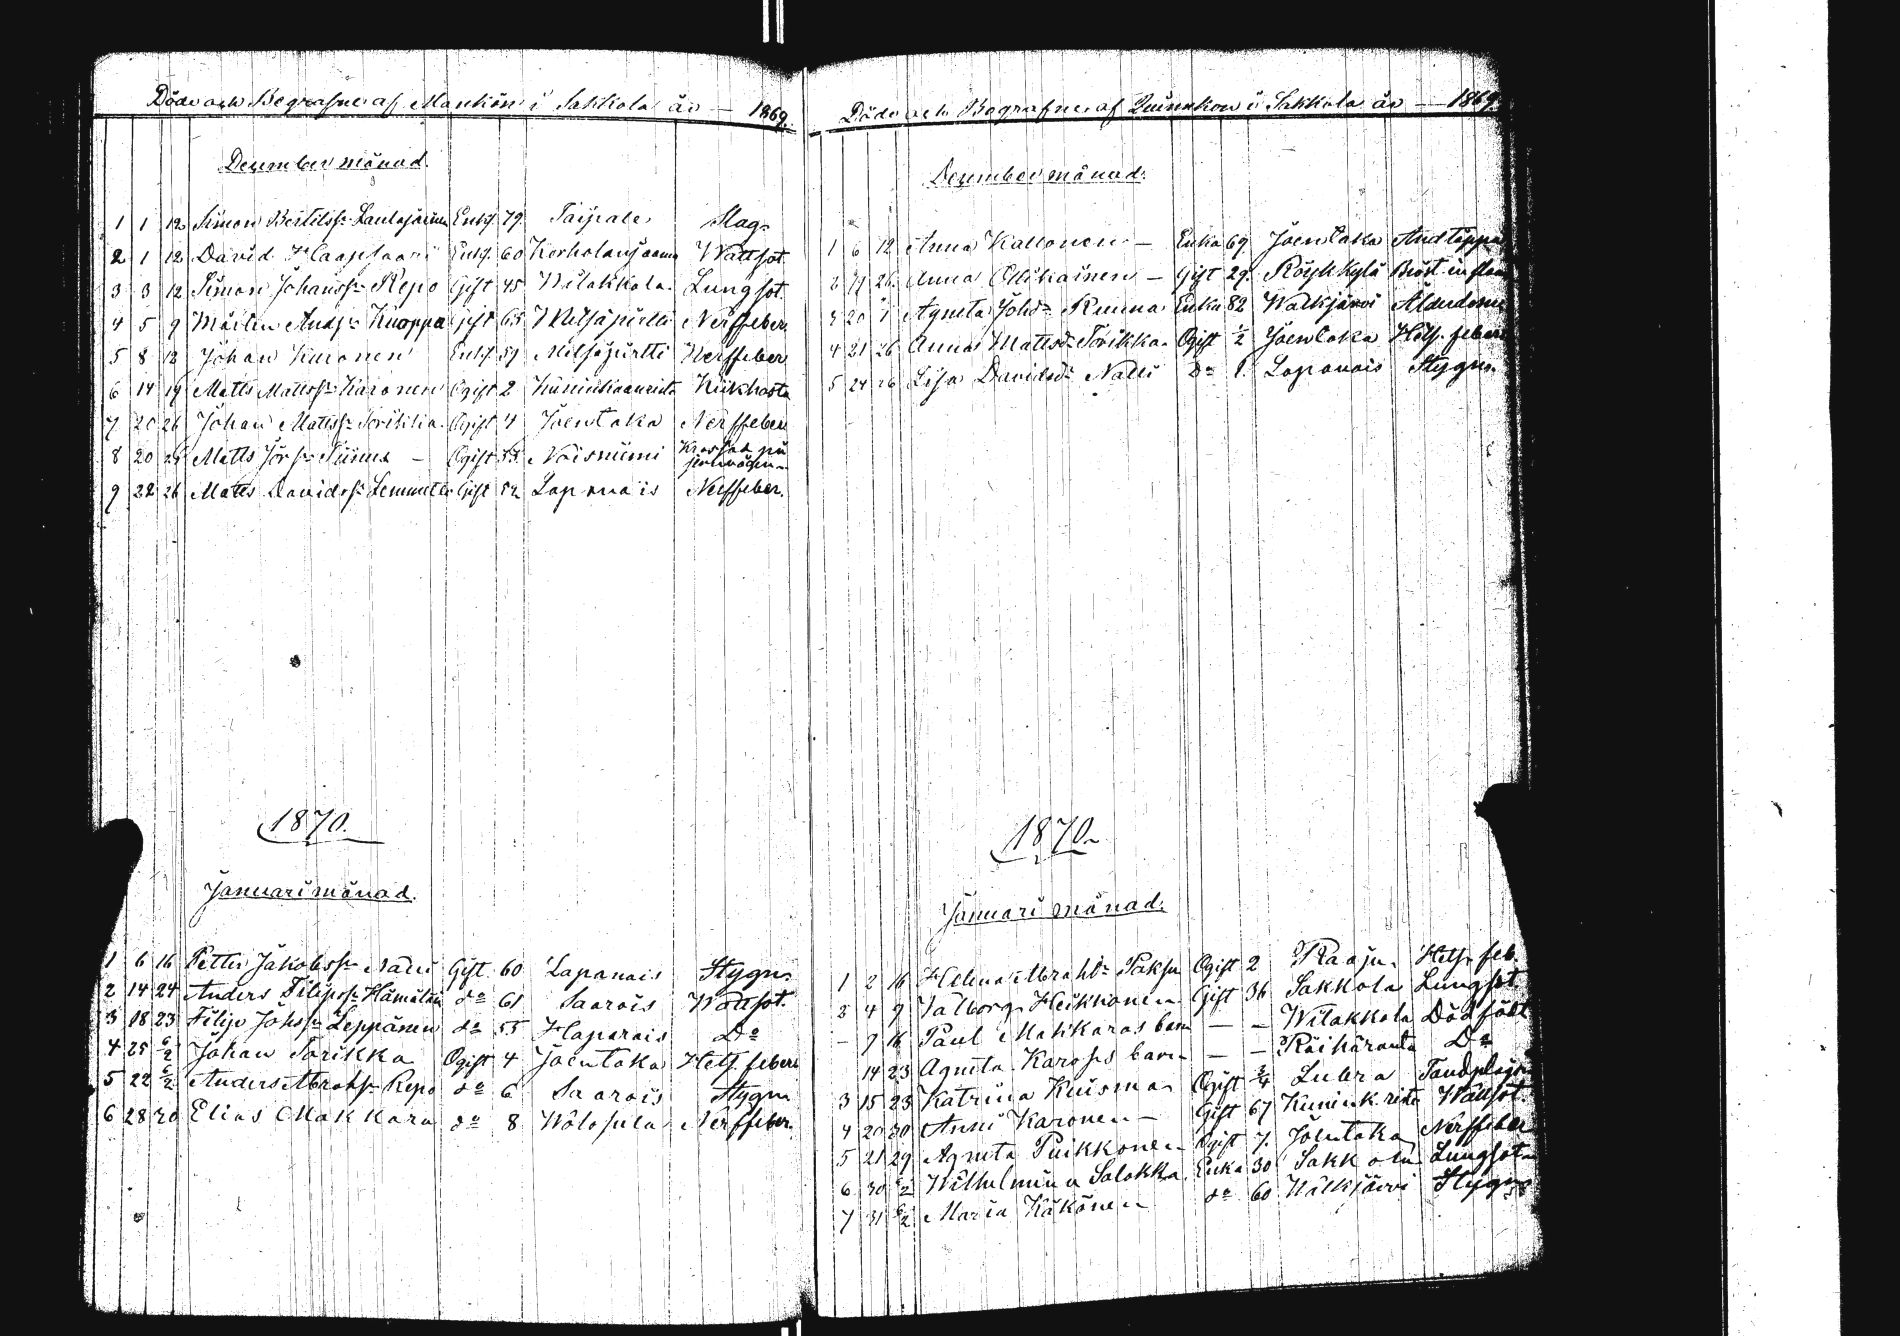 Döde och Begrafne af Mankön i Sakkola år — 1869.
December månad.
1 1 12 Simon Bertilss: Enkl. 79. Taipale Slag
2 1 12 David Haapsaari Enkl. 60 Korholanjaama Wattsot
3 3 12 Simon Johanss: Repo Gift 45 Wilakkala Lungsot
4 5 9 Mårten Ands: Kuoppa Gift 65 Metsäpirtti Nerffeber
5 8 12 Johan Kuronen Enkl. 59 Metsäpirtti Nerffeber
6 14 19 Matts Mattss: Karonen Ogift 2 Kikhosta
7 20 26 Johan Mattss: Torikka Ogift 4 Joentaka Nerffeber
8 20 Matts Ogift Noisniemi Krossad på
jernvägen
9 22 26 Matts Davidss: Gift 52 Lapanais Nerffeber.
1870.
Januari månad.
1 6 16 Petter Jakobss: Nalli Gift 60 Lapanais Stygn
2 14 24 Anders Filipss: Hämäläin do 61 Saarois Wattsot
3 18 23 Filip Johss: Leppänen do 55 Haparais Do
4 25 6/2 Johan Torikka Ogift 4 Joentaka Hets. feber
5 22 6/2 Anders Abrahs: Repo do 6 Saarois Stygn
6 28 30 Elias Makkara do 8 Wolosula Nerffeber.
Döde och Begrafne af Quinnkön i Sakkola år — 1869.
December månad.
1 6 12 Anna Kallonen — Enka 69. Joentaka Andtäppa
2 19 26 Anna Ollikainen — Gift 29. Röykkylä Bröst inflam
3 20 Agneta Johsd: Ruuna Enka 82 Walkjärvi Ålderdom
4 21 26 Anna Mattsd: Torikka Ogift 1/2 Joentaka Hets. feber
5 24 26 Lisa Davidsd: Nalli do Lapanais Stygn
1870
Januari månad.
1 2 16 Helena Abrahd: Paksu Ogift 2 Raaju Hets feb.
2 4 9 Valborg Heikkonen Gift 36 Sakkola Lungsot
— 7 16 Paul Matikaras barn — — Wilakkala Dödfödt
14 23 Agneta Karoses barn — — Räiköranta Do
3 15 23 Katrina Kuisma Ogift 3/4 Lubra
4 20 30 Anni Karonen — Gift 67 Wattsot
5 21 29 Agneta Puikkonen Ogift 7. Joentaka Nerffeber
6 30 6/2 Wilhelmina Salakka Enka 30 Sakkola Lungsot
7 31 6/2 Maria Käkönen do 60 Walkjärvi Stygn